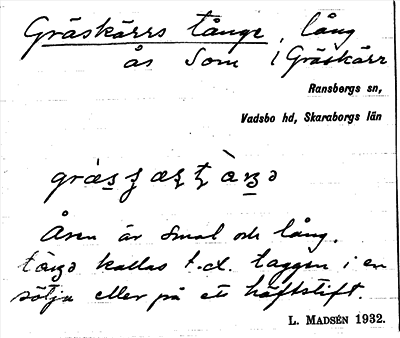 Gräskärrs tånge, lång
ås som i Gräskärr
Ransbergs sn,
Vadsbo hd, Skaraborgs län
Åsen är smal och lång.
kallas t.ex. taggen i en
sölja eller på ett häftstift.
L. MADSÉN 1932.